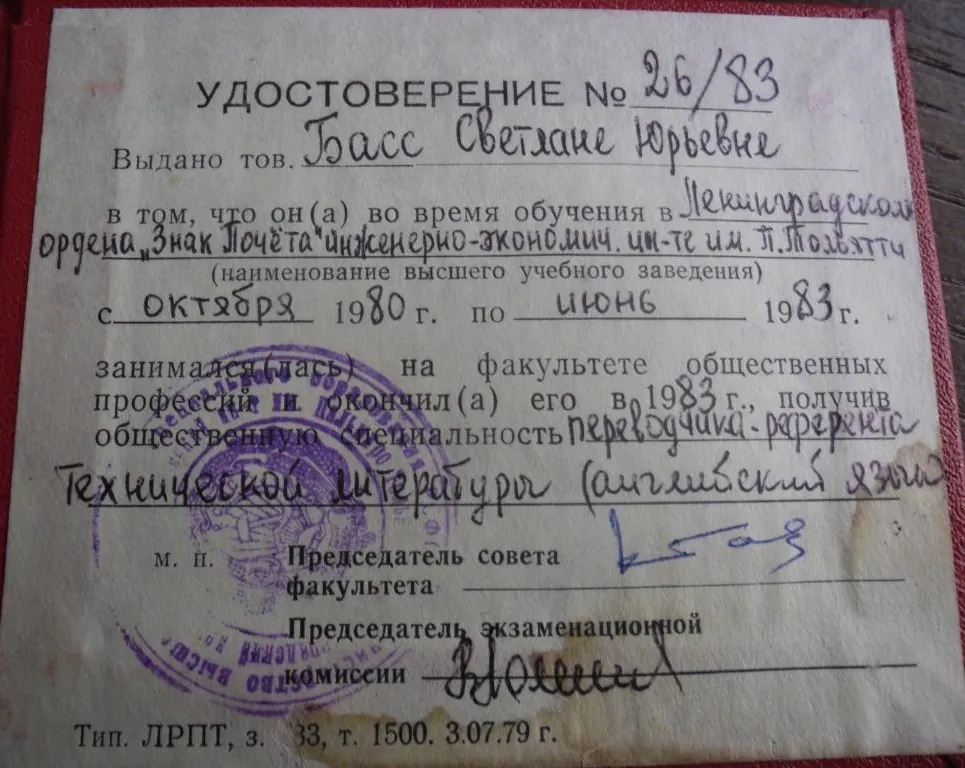 УДОСТОВЕРЕНИЕ № 26/83
Выдано тов. Басс Светлане Юрьевне
в том, что он(а) во время обучения в Ленинградском
ордена „Знак Почёта" инженерно-экономич. ин-те им. П. Тольятти
(наименование высшего учебного заведения)
с октября 1980 г. по июнь 1983 г.
занимался(лась) на факультете общественных
профессий и окончил(а) его в 1983 г., получив
общественную специальность переводчика-референта
технической литературы (английский язык)
м. п. Председатель совета
факультета
Председатель экзаменационной
комиссии
Тип. ЛРПТ, з. 33, т. 1500. 3.07.79 г.